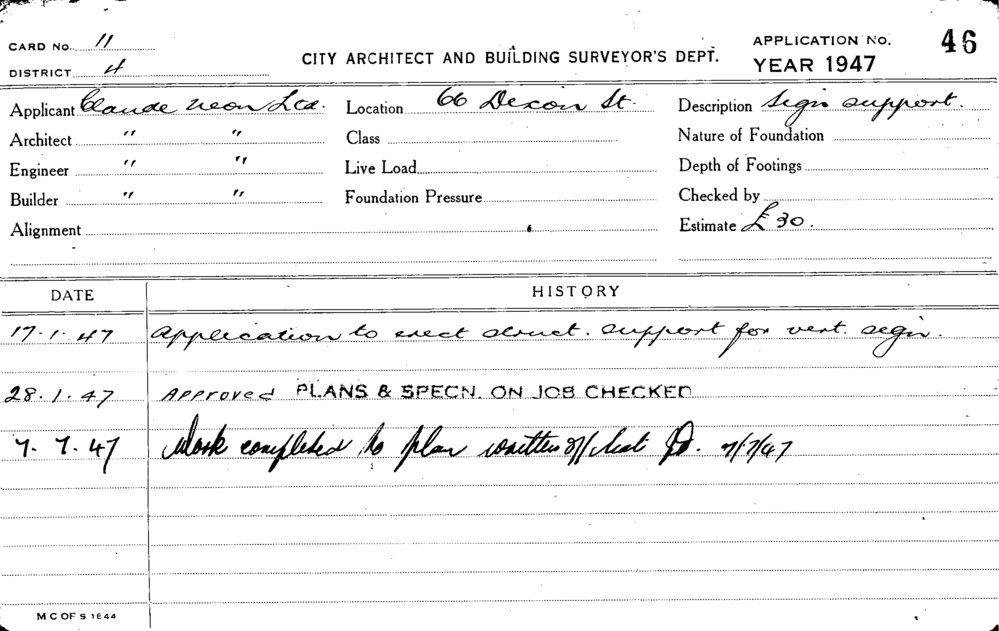 CARD No. 11
DISTRICT 4
CITY ARCHITECT AND BUILDING SURVEYOR'S DEPT.
APPLICATION No. 46
YEAR 1947
Applicant Claude Neon Ltd. Location 66 Dixon St. Description Sign support.
Architect " " Class Nature of Foundation
Engineer " " Live Load Depth of Footings
Builder " " Foundation Pressure Checked by
Alignment Estimate £30.
DATE HISTORY
17.1.47 Application to erect struct. support for vert. sign.
28.1.47 Approved PLANS & SPECN. ON JOB CHECKED
7.7.47 Work completed to plan written off 7/7/47
M C OF S 1644